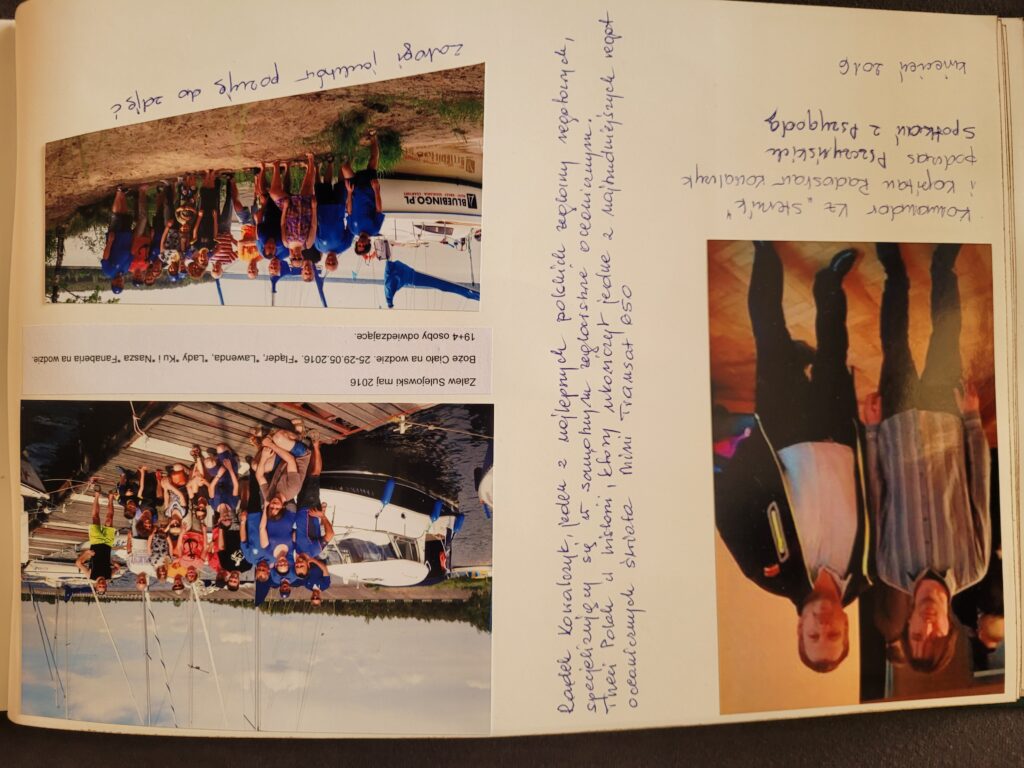 kwiecień 2016
Komandor KŻ "Sternik"
i kapitan Radosław Kowalczyk
podczas Pszczyńskich
Spotkań z Przygodą
Radek Kowalczyk, jeden z najlepszych polskich żeglarzy regatowych,
specjalizujący się w samotnym żeglarstwie oceanicznym.
Trzeci Polak w historii, który ukończył jedne z najtrudniejszych regat
oceanicznych świata Mini Transat 650
Zalew Sulejowski maj 2016
Boże Ciało na wodzie. 25-29.05.2016. "Fląder, "Lawenda, "Lady "Ku i "Nasza "Fanaberia na wodzie.
19+4 osoby odwiedzające.
BLUEBINGO.PL
Załogi jachtów pozują do zdjęć